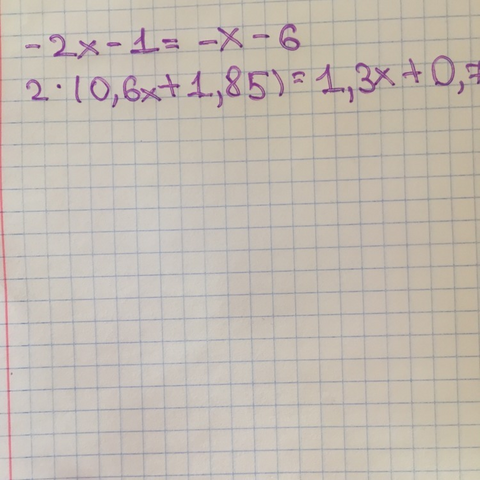 -2x-1=-x-6
2·(0,6x+1,85)=1,3x+0,7